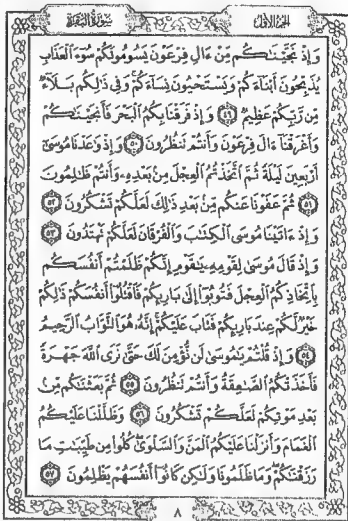 الجزء الأول
سورة البقرة
وَإِذْ نَجَّيْنَٰكُم مِّنْ ءَالِ فِرْعَوْنَ يَسُومُونَكُمْ سُوٓءَ ٱلْعَذَابِ
يُذَبِّحُونَ أَبْنَآءَكُمْ وَيَسْتَحْيُونَ نِسَآءَكُمْ وَفِى ذَٰلِكُم بَلَآءٌ
مِّن رَّبِّكُمْ عَظِيمٌ ٤٩ وَإِذْ فَرَقْنَا بِكُمُ ٱلْبَحْرَ فَأَنجَيْنَٰكُمْ
وَأَغْرَقْنَآ ءَالَ فِرْعَوْنَ وَأَنتُمْ تَنظُرُونَ ٥٠ وَإِذْ وَٰعَدْنَا مُوسَىٰٓ
أَرْبَعِينَ لَيْلَةً ثُمَّ ٱتَّخَذْتُمُ ٱلْعِجْلَ مِنۢ بَعْدِهِۦ وَأَنتُمْ ظَٰلِمُونَ
٥١ ثُمَّ عَفَوْنَا عَنكُم مِّنۢ بَعْدِ ذَٰلِكَ لَعَلَّكُمْ تَشْكُرُونَ ٥٢
وَإِذْ ءَاتَيْنَا مُوسَى ٱلْكِتَٰبَ وَٱلْفُرْقَانَ لَعَلَّكُمْ تَهْتَدُونَ ٥٣
وَإِذْ قَالَ مُوسَىٰ لِقَوْمِهِۦ يَٰقَوْمِ إِنَّكُمْ ظَلَمْتُمْ أَنفُسَكُم
بِٱتِّخَاذِكُمُ ٱلْعِجْلَ فَتُوبُوٓا۟ إِلَىٰ بَارِئِكُمْ فَٱقْتُلُوٓا۟ أَنفُسَكُمْ ذَٰلِكُمْ
خَيْرٌ لَّكُمْ عِندَ بَارِئِكُمْ فَتَابَ عَلَيْكُمْ إِنَّهُۥ هُوَ ٱلتَّوَّابُ ٱلرَّحِيمُ
٥٤ وَإِذْ قُلْتُمْ يَٰمُوسَىٰ لَن نُّؤْمِنَ لَكَ حَتَّىٰ نَرَى ٱللَّهَ جَهْرَةً
فَأَخَذَتْكُمُ ٱلصَّٰعِقَةُ وَأَنتُمْ تَنظُرُونَ ٥٥ ثُمَّ بَعَثْنَٰكُم مِّنۢ
بَعْدِ مَوْتِكُمْ لَعَلَّكُمْ تَشْكُرُونَ ٥٦ وَظَلَّلْنَا عَلَيْكُمُ
ٱلْغَمَامَ وَأَنزَلْنَا عَلَيْكُمُ ٱلْمَنَّ وَٱلسَّلْوَىٰ كُلُوا۟ مِن طَيِّبَٰتِ مَا
رَزَقْنَٰكُمْ وَمَا ظَلَمُونَا وَلَٰكِن كَانُوٓا۟ أَنفُسَهُمْ يَظْلِمُونَ ٥٧
٨